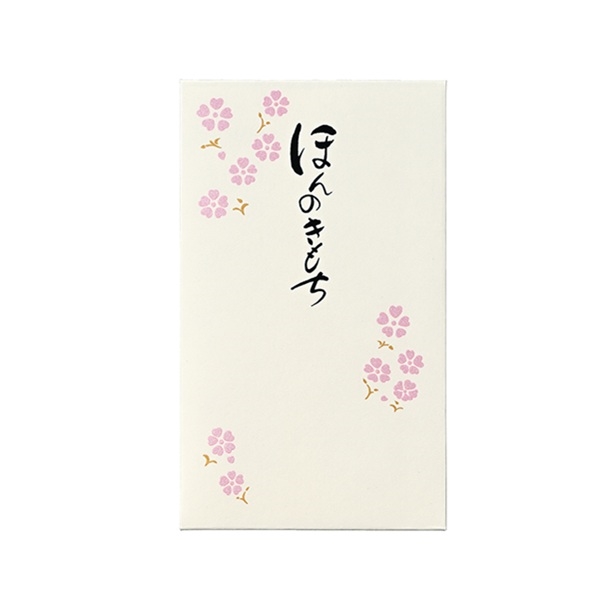 ほんのきもち